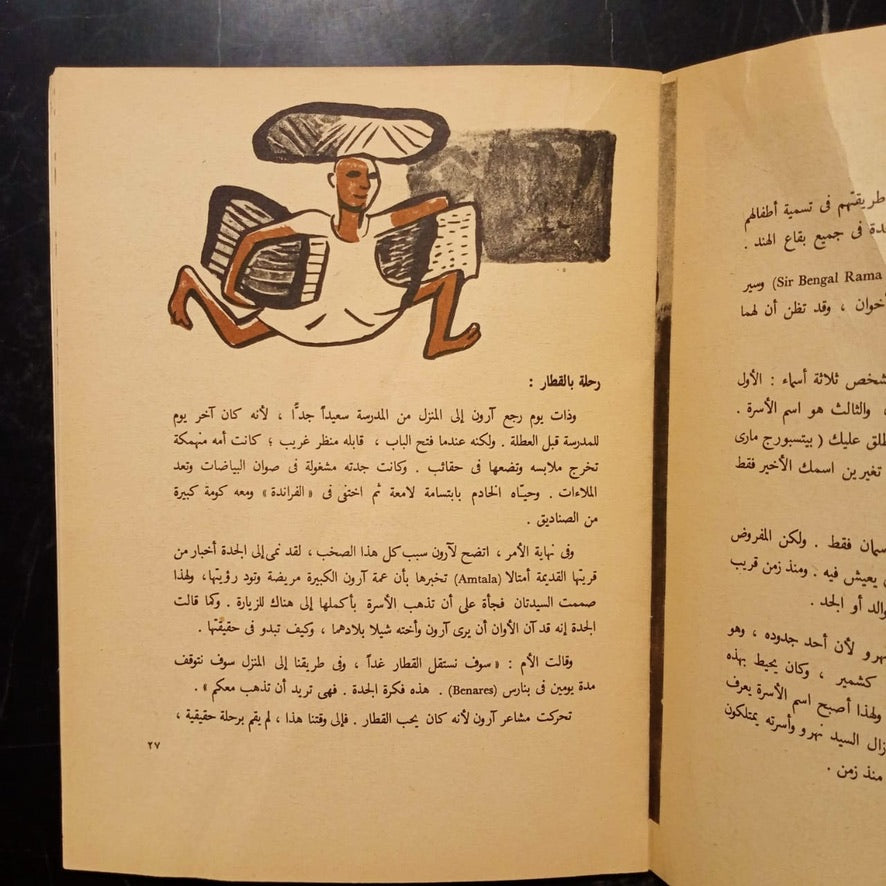 طريقتهم فى تسمية أطفالهم
فى جميع بقاع الهند .
(Sir Bengal Rama وسير
، وقد تظن أن لهما
ثلاثة أسماء : الأول
، والثالث هو اسم الأسرة .
عليك ( بيتسبورج مارى
تغيرين اسمك الأخير فقط
فقط . ولكن المفروض
يعيش فيه . ومنذ زمن قريب
أو الجد .
لأن أحد جدوده ، وهو
كشمير ، وكان يحيط بهذه
ولهذا أصبح اسم الأسرة يعرف
السيد نهرو وأسرته يمتلكون
منذ زمن .
رحلة بالقطار :
وذات يوم رجع آرون إلى المنزل من المدرسة سعيداً جدًّا ، لأنه كان آخر يوم
للمدرسة قبل العطلة . ولكنه عندما فتح الباب ، قابله منظر غريب ؛ كانت أمه منهمكة
تخرج ملابسه وتضعها فى حقائب . وكانت جدته مشغولة فى صوان البياضات وتعد
الملاءات . وحيّاه الخادم بابتسامة لامعة ثم اختفى فى «الفراندة» ومعه كومة كبيرة
من الصناديق .
وفى نهاية الأمر ، اتضح لآرون سبب كل هذا الصخب ، لقد نمى إلى الجدة أخبار من
قريتها القديمة أمتالا (Amtala) تخبرها بأن عمة آرون الكبيرة مريضة وتود رؤيتها، ولهذا
صممت السيدتان فجأة على أن تذهب الأسرة بأكملها إلى هناك للزيارة . وكما قالت
الجدة إنه قد آن الأوان أن يرى آرون وأخته شيلا بلادهما ، وكيف تبدو فى حقيقتها .
وقالت الأم : «سوف نستقل القطار غداً ، وفى طريقنا إلى المنزل سوف نتوقف
مدة يومين فى بنارس (Benares) . هذه فكرة الجدة . فهى تريد أن تذهب معكم» .
تحركت مشاعر آرون لأنه كان يحب القطار . فإلى وقتنا هذا ، لم يقم برحلة حقيقية ،
٢٧